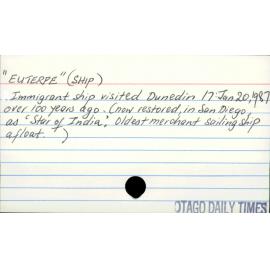 "EUTERPE" (SHIP)
Immigrant ship visited Dunedin 17 Jan 20, 1987
over 100 years ago. (now restored, in San Diego
as 'Star of India'. Oldest merchant sailing ship
afloat. )
OTAGO DAILY TIMES